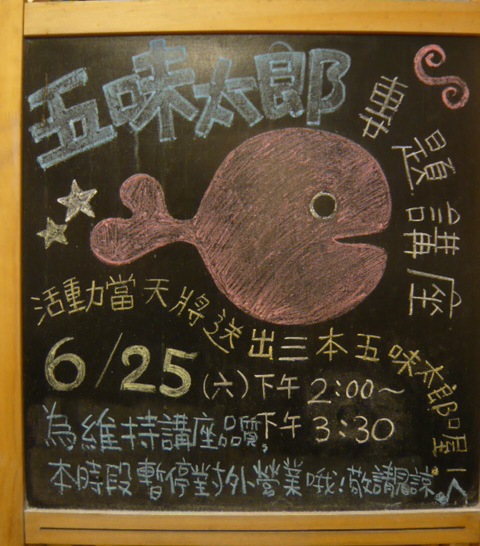 五味太郎
專題講座
活動當天將送出三本五味太郎喔!
6/25(六)下午2:00~
下午3:30
為維持講座品質,
本時段暫停對外營業哦!敬請見諒。